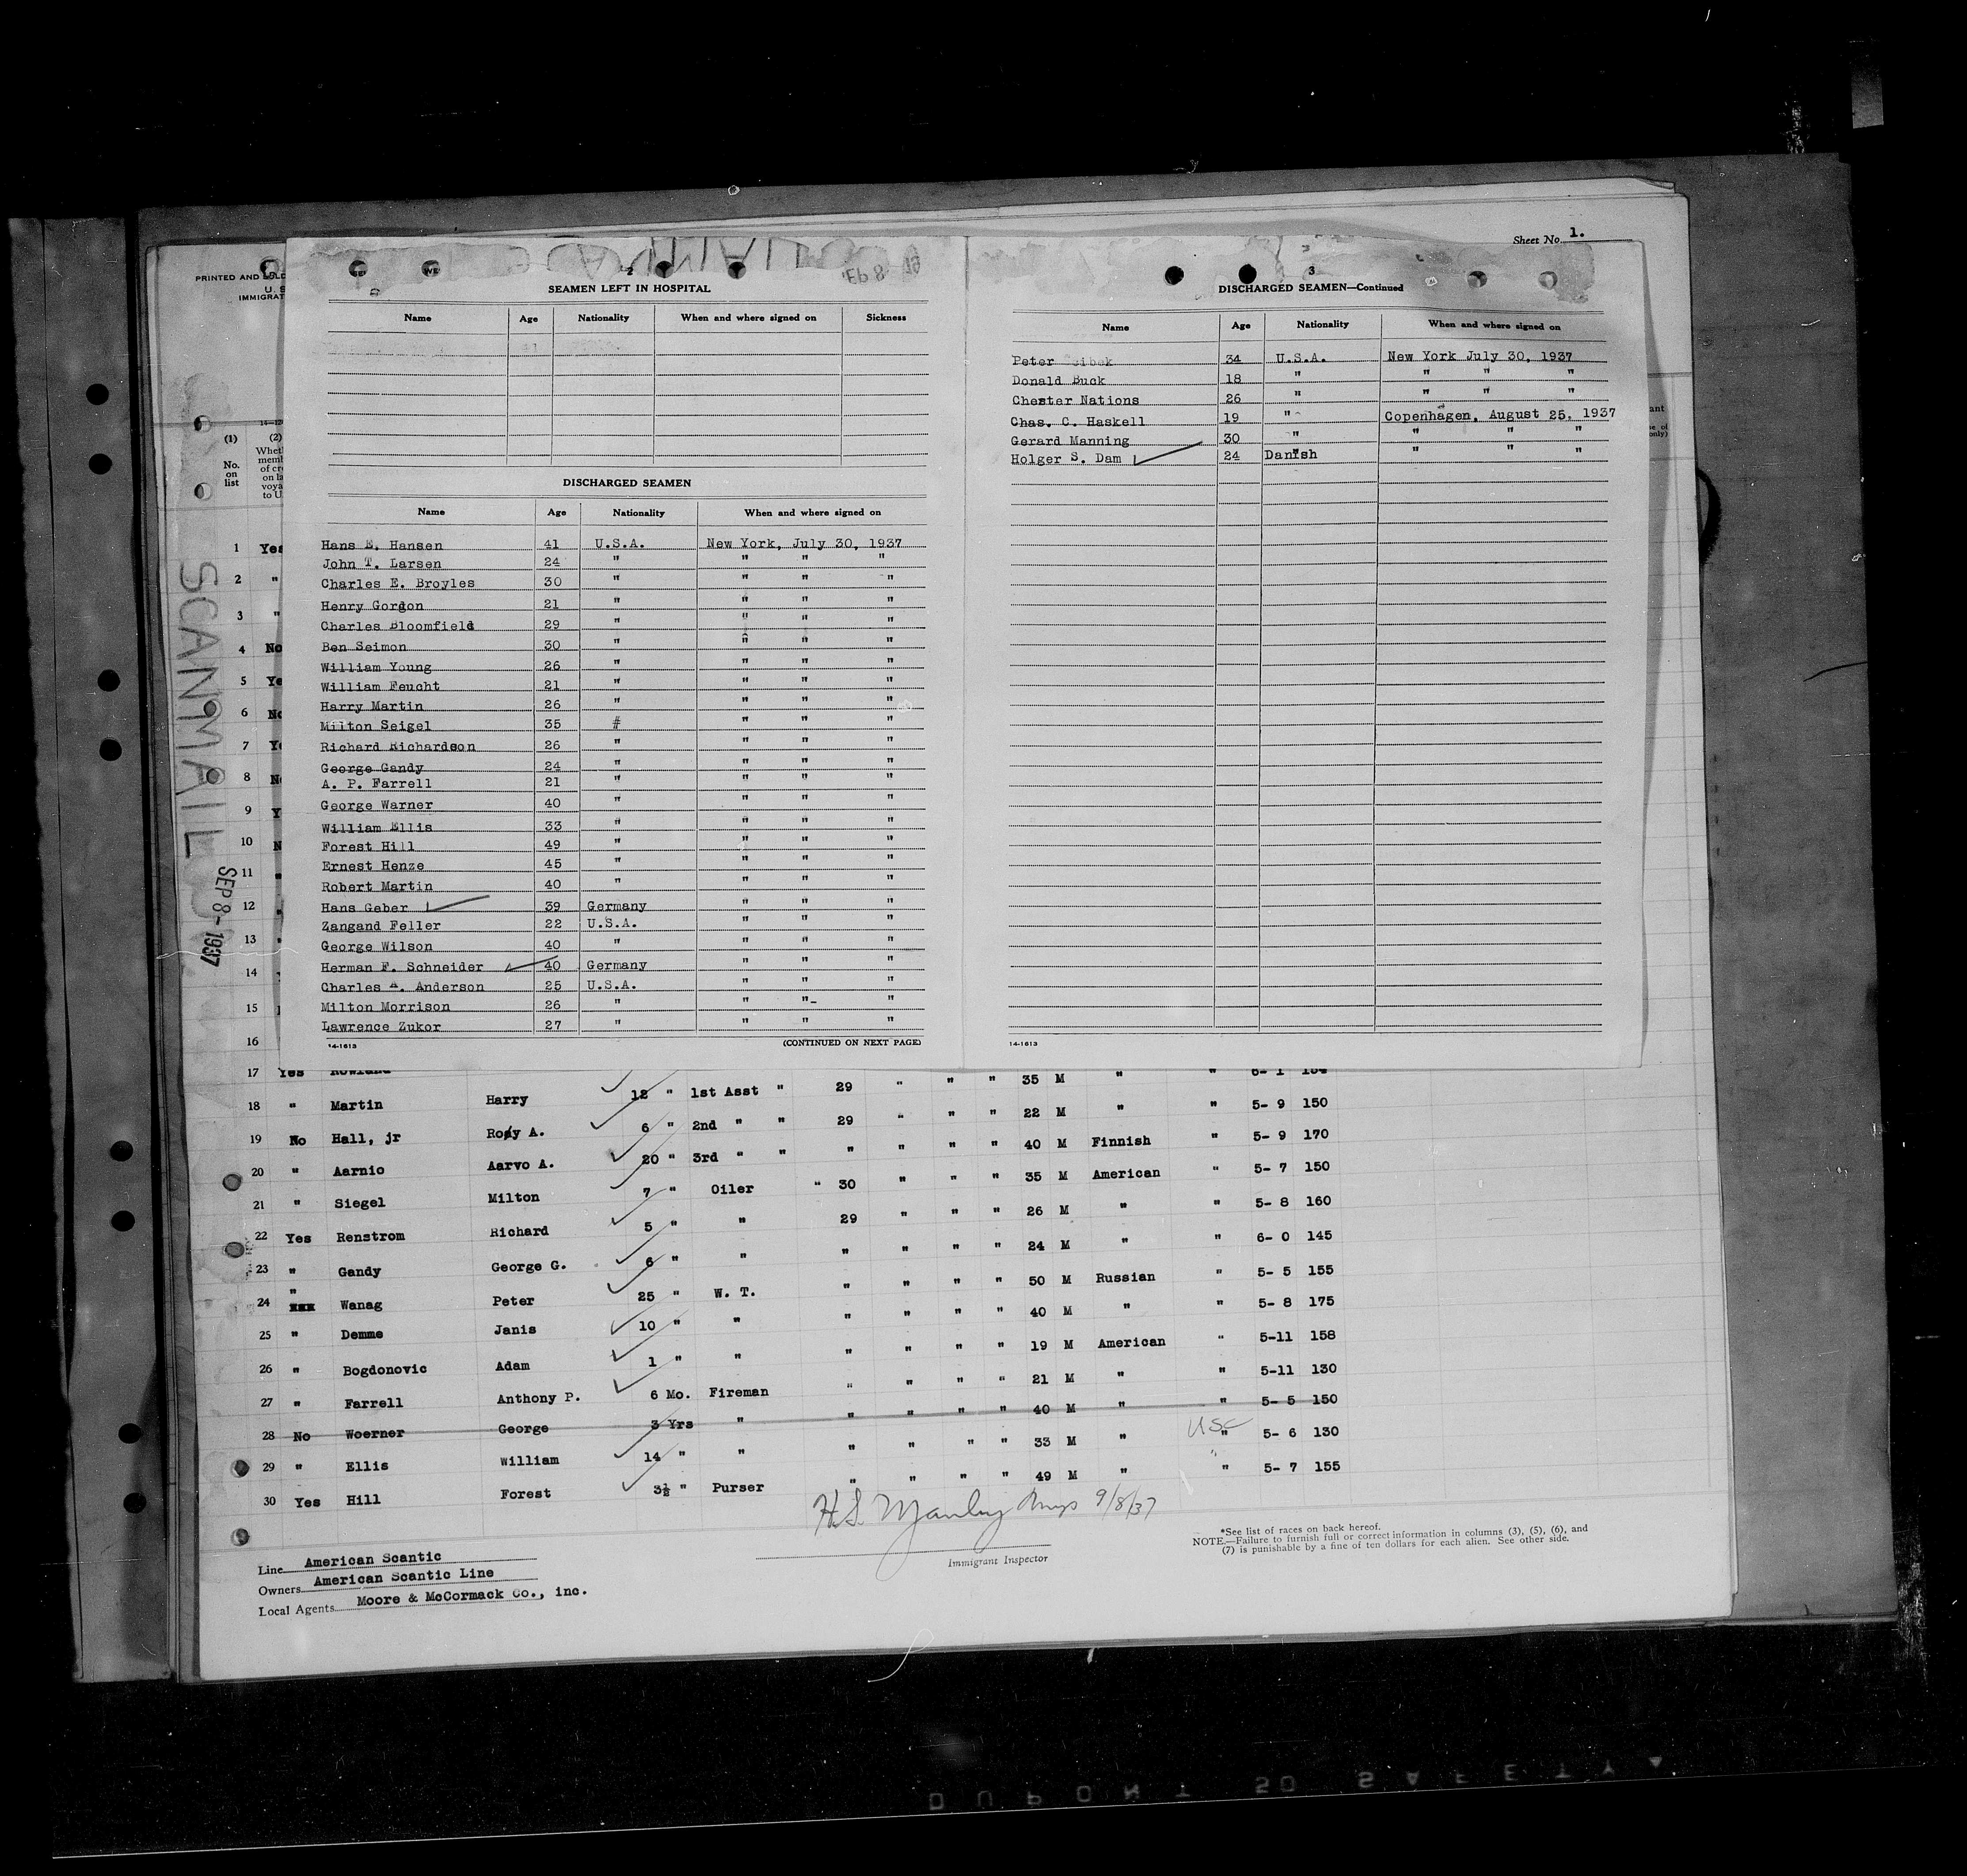 Sheet No. 1.
PRINTED AND
U. S
IMMIGRAT
2
SEAMEN LEFT IN HOSPITAL
Name Age Nationality When and where signed on Sickness
DISCHARGED SEAMEN
Name Age Nationality When and where signed on
Hans E. Hansen 41 U.S.A. New York, July 30, 1937
John T. Larsen 24 " " " "
Charles E. Broyles 30 " " " "
Henry Gordon 21 " " " "
Charles Bloomfield 29 " " " "
Ben Seimon 30 " " " "
William Young 26 " " " "
William Feucht 21 " " " "
Harry Martin 26 " " " "
Milton Seigel 35 # " " "
Richard Richardson 26 " " " "
George Gandy 24 " " " "
A. P. Farrell 21 " " " "
George Warner 40 " " " "
William Ellis 33 " " " "
Forest Hill 49 " " " "
Ernest Henze 45 " " " "
Robert Martin 40 " " " "
Hans Geber 39 Germany " " "
Zangand Feller 22 U.S.A. " " "
George Wilson 40 " " " "
Herman F. Schneider 40 Germany " " "
Charles A. Anderson 25 U.S.A. " " "
Milton Morrison 26 " " " "
Lawrence Zukor 27 " " " "
14-1613 (CONTINUED ON NEXT PAGE)
3
DISCHARGED SEAMEN—Continued
Name Age Nationality When and where signed on
Peter 34 U.S.A. New York July 30, 1937
Donald Buck 18 " " " "
Chester Nations 26 " " " "
Chas. C. Haskell 19 " Copenhagen, August 25, 1937
Gerard Manning 30 " " " "
Holger S. Dam 24 Danish " " "
14-1613
(1) (2)
No.
on
list
SCANMAIL
SEP 8-1937
1 Yes
2 "
3 "
4 No
5 Ye
6 No
7 Ye
8 N
9 Y
10 N
11 "
12
13
14
15
16
17 Yes Rowland
18 " Martin Harry 12 " 1st Asst " 29 " " " 35 M " " 5- 9 150
19 No Hall, jr Roy A. 6 " 2nd " " 29 " " " 22 M " " 5- 9 170
20 " Aarnio Aarvo A. 20 " 3rd " " " " " " 40 M Finnish " 5- 7 150
21 " Siegel Milton 7 " Oiler " 30 " " " 35 M American " 5- 8 160
22 Yes Renstrom Richard 5 " " 29 " " " 26 M " " 6- 0 145
23 " Gandy George G. 6 " " " " " " 24 M " " 5- 5 155
24 " xxx Wanag Peter 25 " W. T. " " " " 50 M Russian " 5- 8 175
25 " Demme Janis 10 " " " " " " 40 M " " 5-11 158
26 " Bogdonovic Adam 1 " " " " " " 19 M American " 5-11 130
27 " Farrell Anthony P. 6 Mo. Fireman " " " " 21 M " " 5- 5 150
28 No Woerner George 3 Yrs " " " " " 40 M " " 5- 6 130
29 " Ellis William 14 " " " " " " 33 M " USC " 5- 7 155
30 Yes Hill Forest 3½ " Purser " " " " 49 M " "
H.S. Manley 9/8/37
Immigrant Inspector
*See list of races on back hereof.
NOTE.—Failure to furnish full or correct information in columns (3), (5), (6), and
(7) is punishable by a fine of ten dollars for each alien. See other side.
Line American Scantic
Owners American Scantic Line
Local Agents Moore & McCormack Co., inc.
DUPONT 50 SAFETY